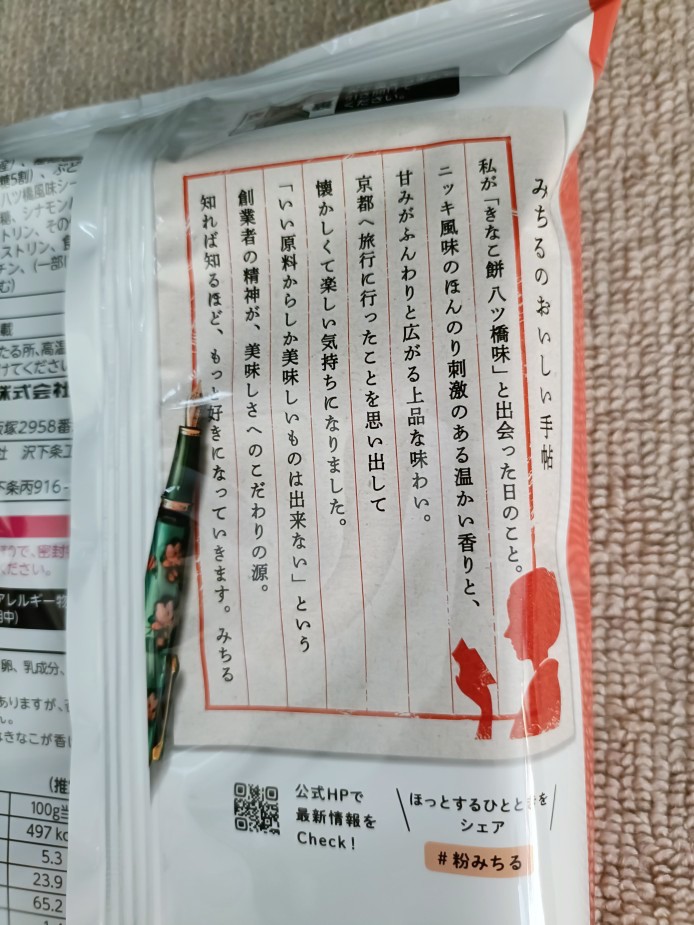 みちるのおいしい手帖
私が「きなこ餅 八ツ橋味」と出会った日のこと。
ニッキ風味のほんのり刺激のある温かい香りと、
甘みがふんわりと広がる上品な味わい。
京都へ旅行に行ったことを思い出して
懐かしくて楽しい気持ちになりました。
「いい原料からしか美味しいものは出来ない」という
創業者の精神が、美味しさへのこだわりの源。
知れば知るほど、もっと好きになっていきます。みちる
公式HPで
最新情報を
Check!
ほっとするひとときを
シェア
#粉みちる
糖5割)、ぶど
八ツ橋風味シー
シナモン
トリン、その
ストリン、
チン、(一部に
む)
載
たる所、高温
けてください
株式会社
塚2958番
社 沢下条工
下条丙916-
で、密封
ださい。
アレルギー物
中)
卵、乳成分、
ありますが、
ん。
きなこが香
(推
100g当
497 kc
5.3
23.9
65.2